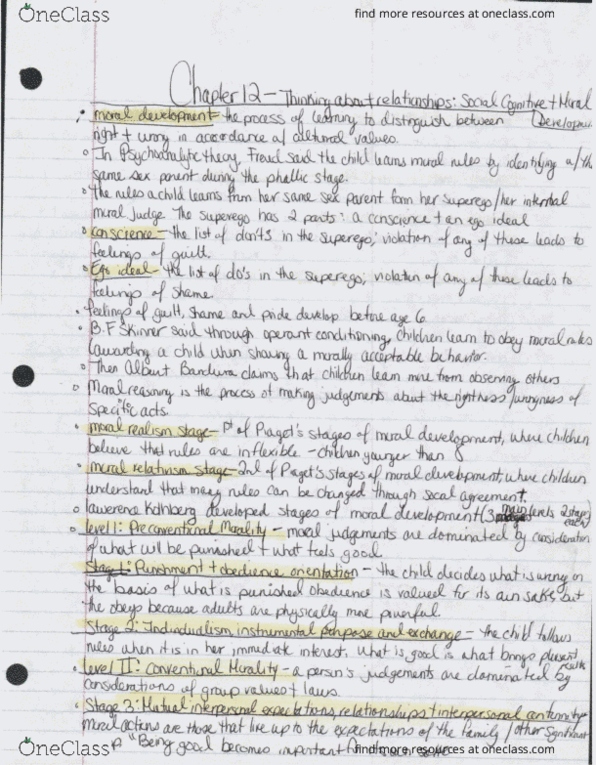 OneClass
find more resources at oneclass.com
Chapter 12 - Thinking about relationships: Social Cognitive + Moral
Develop
moral development - the process of learning to distinguish between
right + wrong in accordance w/ cultural values.
In Psychoanalytic theory, Freud said the child learns moral rules by identifying w/ the
same sex parent during the phallic stage.
The rules a child learns from her same sex parent form her superego/her internal
moral judge The superego has 2 parts: a conscience + an ego ideal
conscience - the list of don'ts in the superego; violation of any of these leads to
feelings of guilt.
Ego ideal - the list of do's in the superego; violation of any of these leads to
feelings of shame.
feelings of guilt, shame and pride develop before age 6
B.F Skinner said through operant conditioning, children learn to obey moral rules
(awarding a child when showing a morally acceptable behavior.
Then Albert Bandura claims that children learn more from observing others
Moral reasoning is the process of making judgements about the rightness/wrongness of
specific acts.
moral realism stage - 1st of Piaget's stages of moral development, where children
believe that rules are inflexible - children younger than 8
moral relativism stage - 2nd of Piaget's stages of moral development, where children
understand that many rules can be changed through social agreement.
Lawerence Kohlberg developed stages of moral development (3 main levels 2 stages
each)
level 1: Preconventional Morality - moral judgements are dominated by consideration
of what will be punished + what feels good.
Stage 1: Punishment + obedience orientation - the child decides what is wrong on
the basis of what is punished obedience is valued for its own sake, but
the obeys because adults are physically more powerful.
Stage 2: Individualism, instrumental purpose and exchange - the child follows
rules when it is in her immediate interest. What is good is what brings pleasant
results
level II: Conventional Morality - a person's judgements are dominated by
considerations of group values + laws.
Stage 3: Mutual interpersonal expectations, relationships + interpersonal conformity
moral actions are those that live up to the expectations of the family/other significant
"Being good becomes important for
OneClass
find more resources at oneclass.com